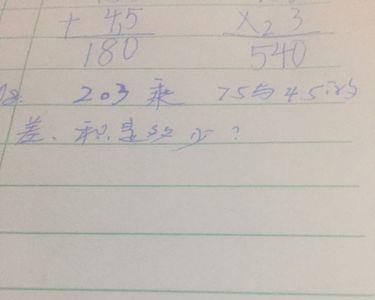 + 45 × 3
180 540
203乘 75与45的
差,积是多少?